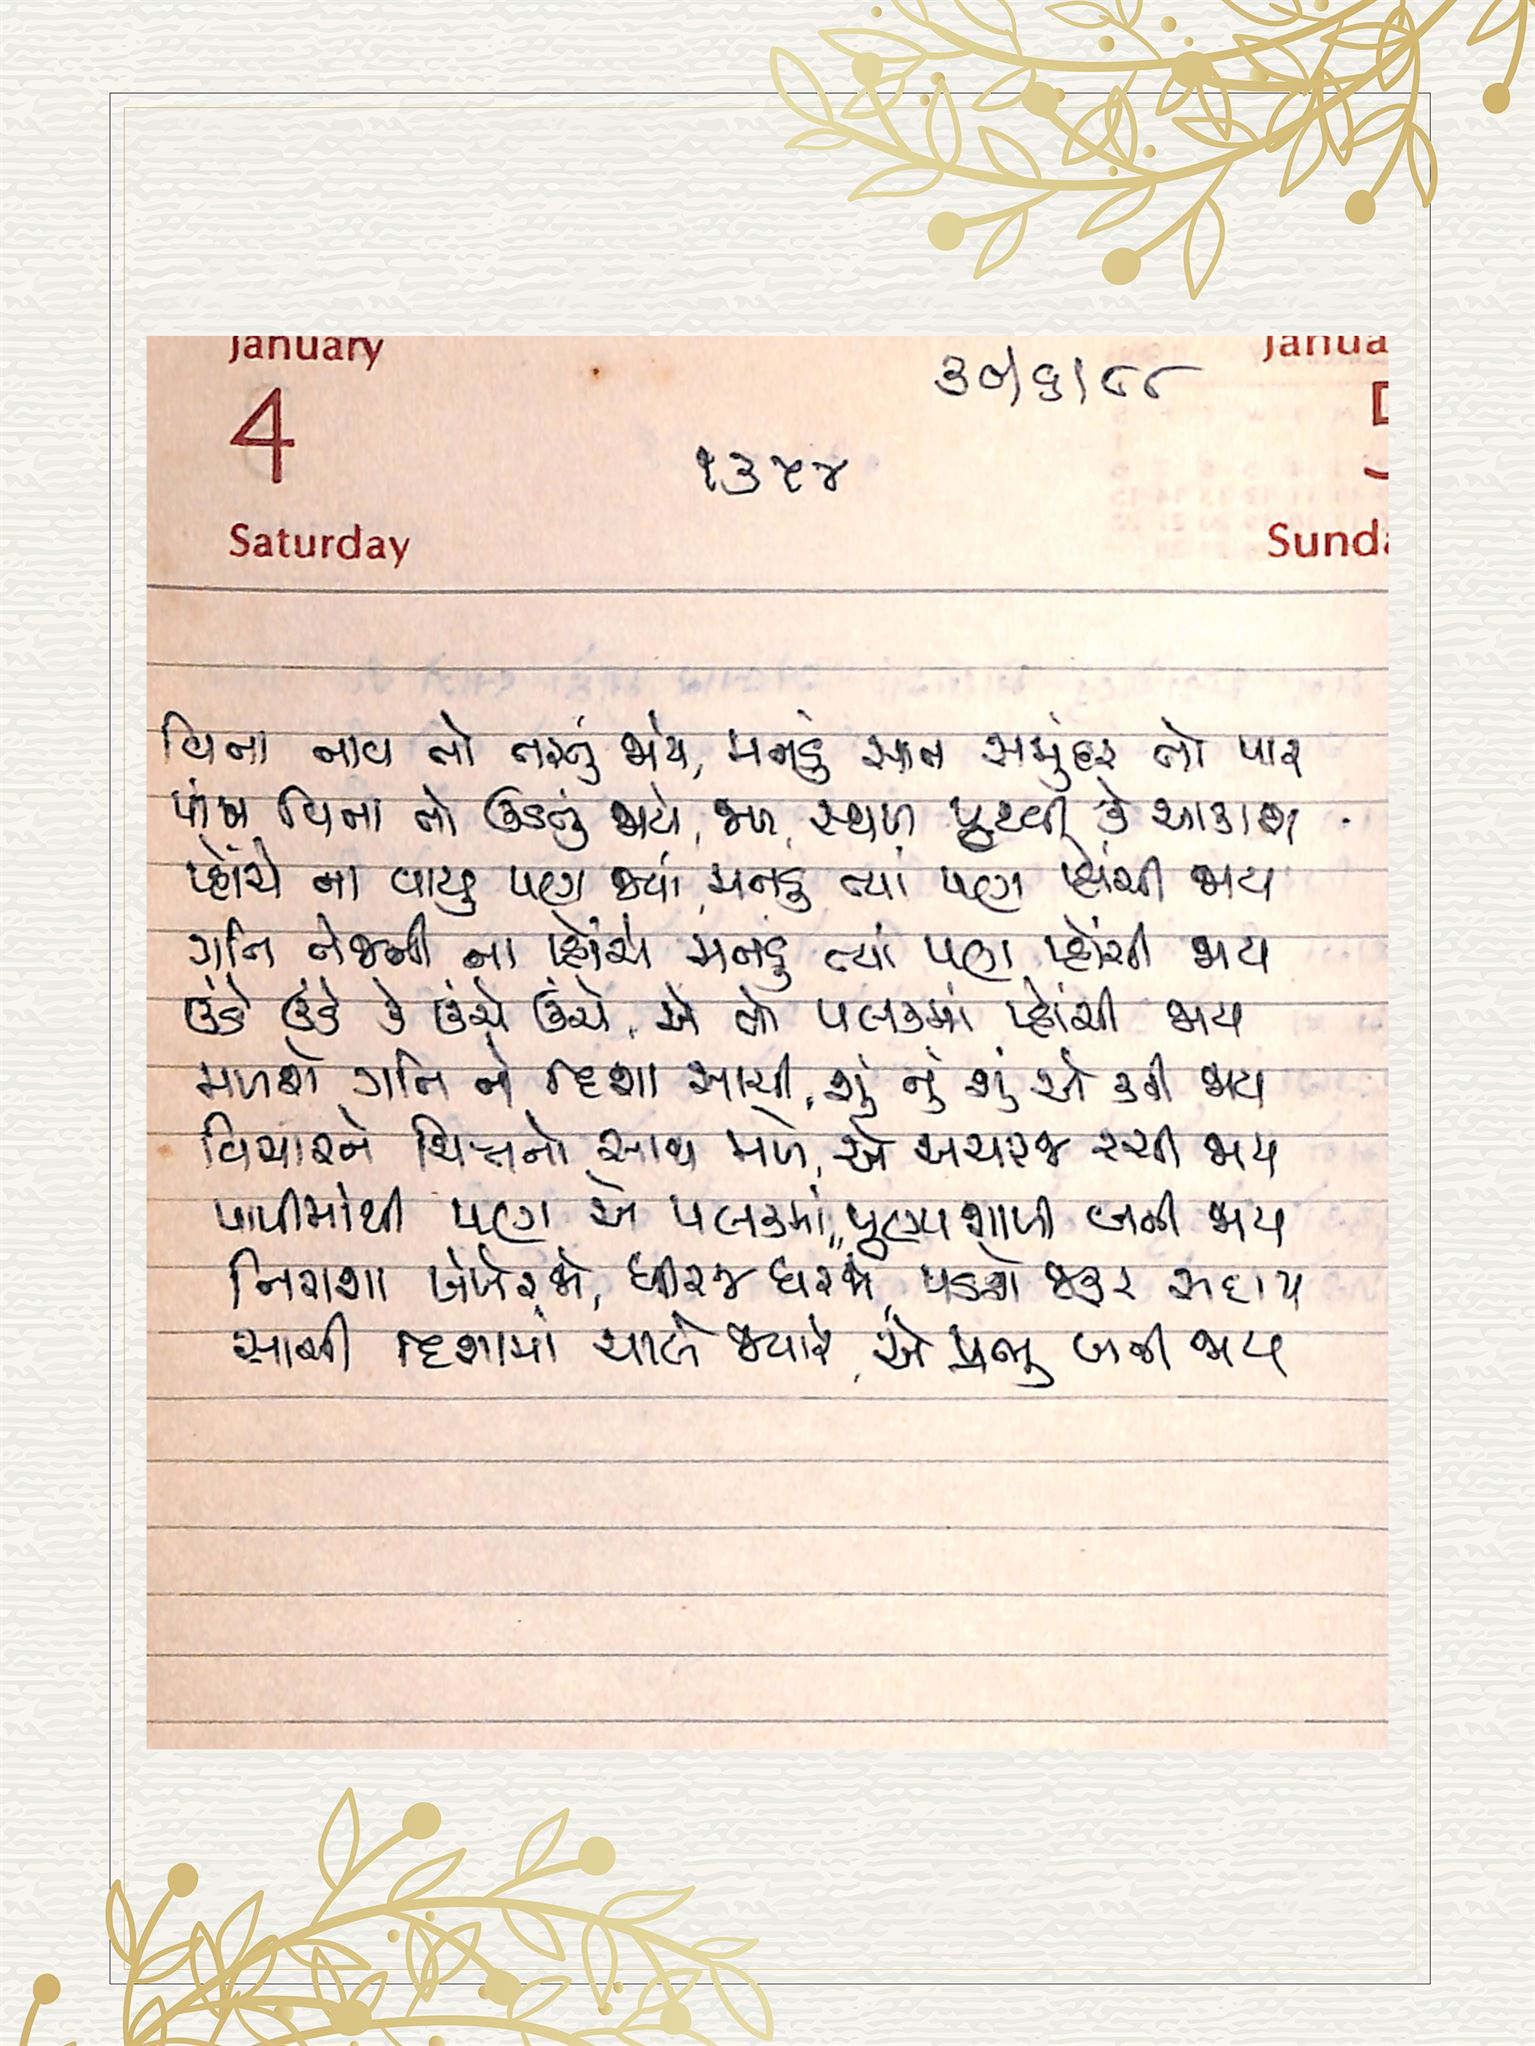 January
Janua
૩૦/૬/૮૮
4
૧૩૫૪
Saturday
Sunda
વિના નાવ તો તરતું જાયે, મનડું સાત સમુંદર તો પાર
પાંખ વિના તો ઉડતું જાયે, જળ, સ્થળ પૃથ્વી કે આકાશ
પ્હોંચે ના વાયુ પણ જ્યાં, મનડું ત્યાં પણ પ્હોંચી જાય
ગતિ તેજની ના પ્હોંચે મનડું ત્યાં પણ પ્હોંચી જાય
ઉંડે ઉંડે કે ઉંચે ઉંચે, એ તો પલકમાં પ્હોંચી જાય
મળશે ગતિ ને દિશા સાચી, શું નું શું એ કરી જાય
વિચારને ચિત્તનો સાથ મળે, એ અચરજ રચી જાય
પાપીમાંથી પણ એ પલકમાં, પુણ્યશાળી બની જાય
નિરાશા ખંખેરજે, ધીરજ ધરજે, પડશે જરૂર સદાય
સાચી દિશામાં ચાલે જ્યારે, એ પ્રભુ બની જાય